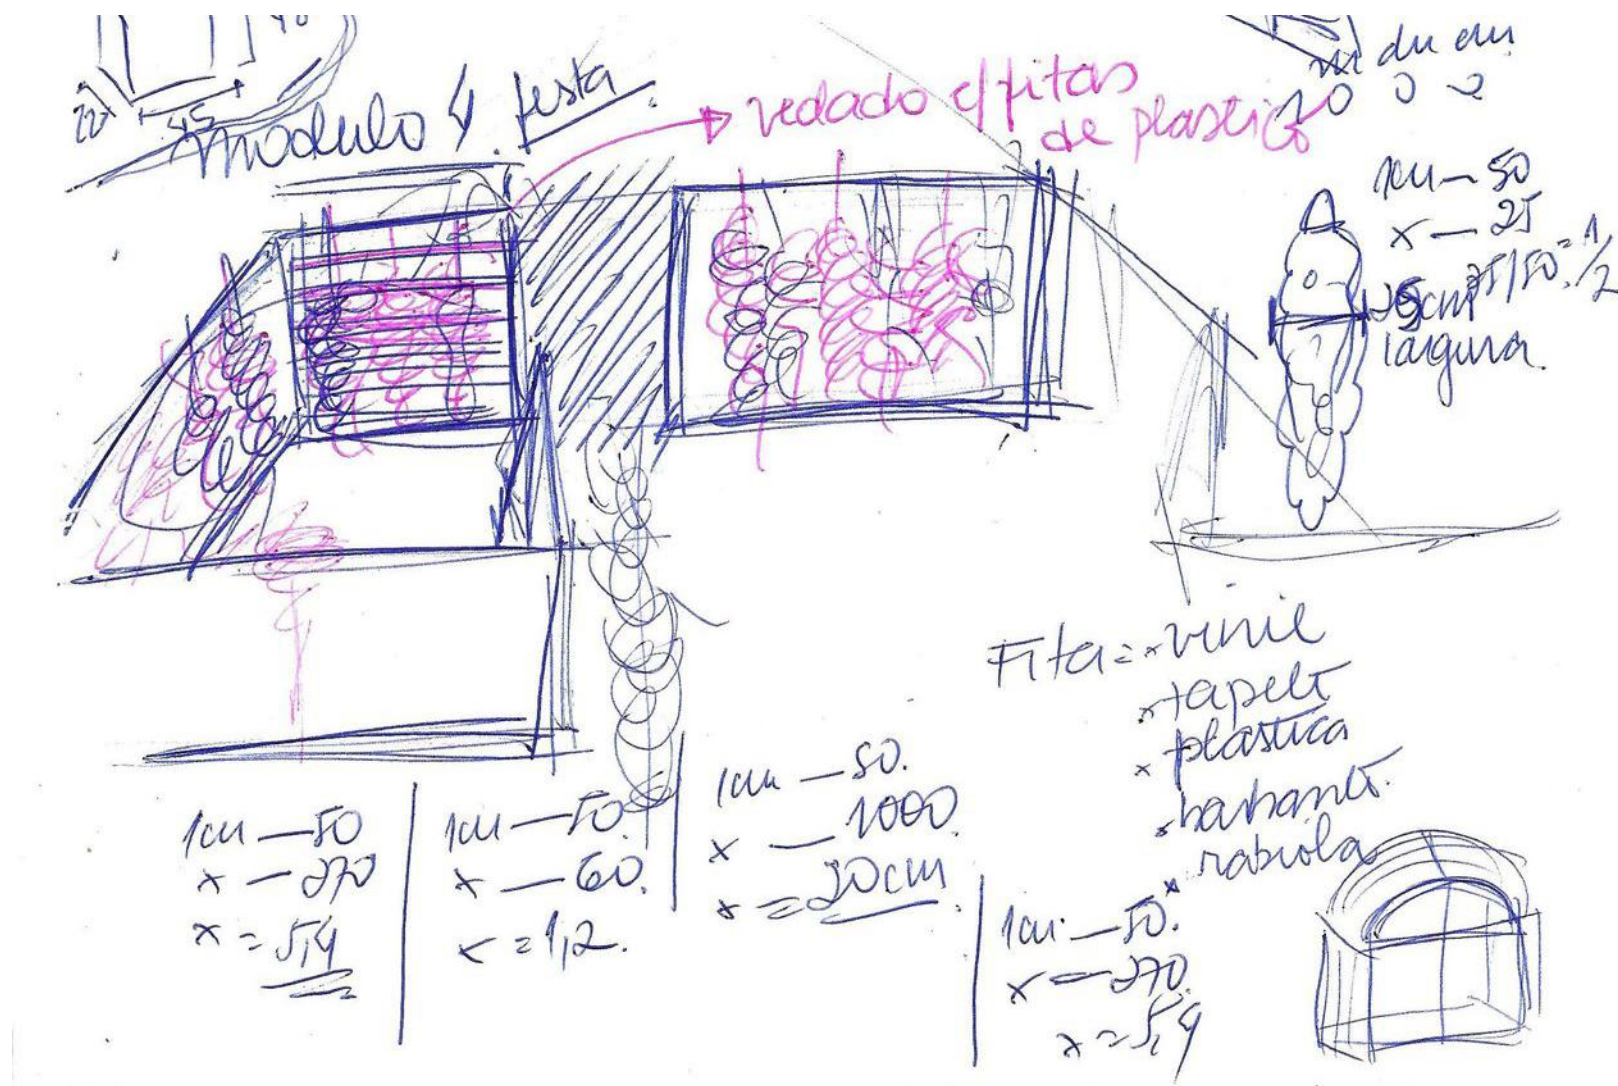 45
modulo 4. festa.
vedado c/ fitas
de plastico
1cm — 50
x — 25
25/50 = 1/2
largura
Fita = x vinil
x tapete
x plastica
x barbante.
x rabiola
1cm — 50
x — 270
x = 5,4
1cm — 50.
x — 60.
x = 1,2.
1cm — 50.
x — 1000.
x = 20cm
1cm — 50.
x — 270
x = 5,4